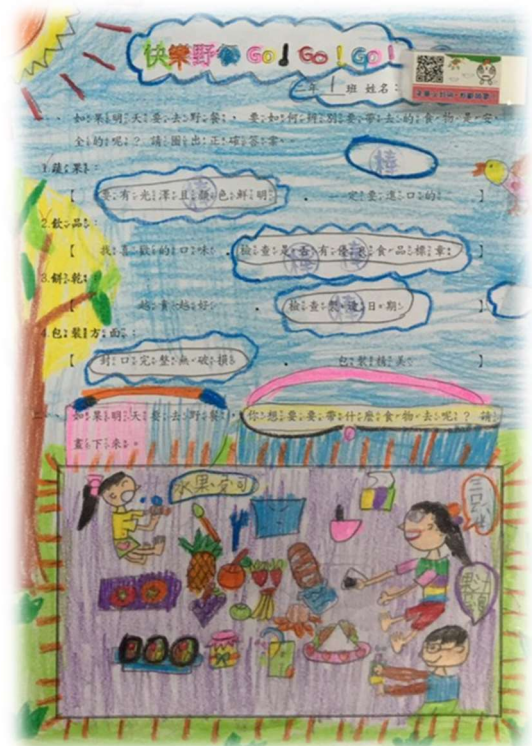 快樂野餐 Go! Go! Go!
二年 1 班 姓名:
一、如果明天要去野餐,要如何辨別要帶去的食物是安
全的呢?請圈出正確答案。
1.蘋果:
【 要有光澤且顏色鮮明 、 一定要進口的 】
2.飲品:
【 我喜歡的口味 、 檢查是否有優良食品標章 】
3.餅乾:
【 越貴越好 、 檢查製造日期 】
4.包裝方面:
【 封口完整無破損 、 包裝精美 】
二、如果明天要去野餐,你想要要帶什麼食物去呢?請
畫下來。
水果壽司